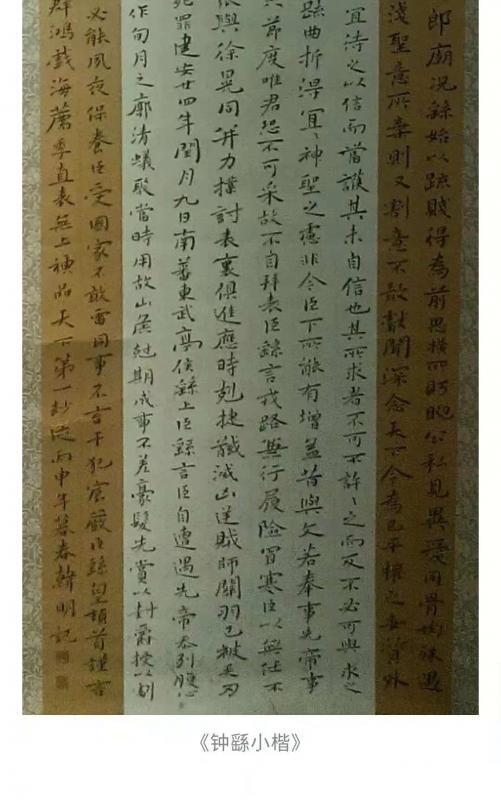 郎廟況繇始以疏賤得為前恩橫所盼睨公私見異愛同骨肉殊遇
淺聖意所棄則又割意不敢獻聞深念天下今為已平權之委質外
宜待之以信而當護其未自信也其所求者不可不許〻之而反不必可與求之
疏曲折得宜〻神聖之慮非今臣下所能有增益昔與文若奉事先帝事
節度唯君恐不可采故不自拜表臣繇言戎路無行履險冒寒臣以無任不
與徐晃同并力撲討表裏俱進應時剋捷馘滅凶逆賊帥關羽已被矢刃
死罪建安廿四年閏月九日南蕃東武亭侯繇上臣繇言臣自遭遇先帝忝列腹心
作旬月之廓清蟻聚當時用故山陽剋期成事不差豪髮先賞以封爵授以劇
必能夙夜保養臣受國家不敢雷同事不言干犯宸嚴臣繇皇頓首謹言
群鴻戲海薦季直表無上神品天下第一妙迹丙申年暮春韓明記
《钟繇小楷》